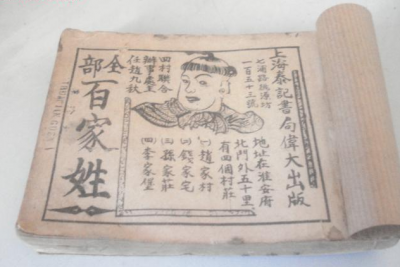 上海泰記書局偉大出版
七浦路振源坊
一百五十三號
地址在淮安府
北門外五十里
有四個村莊
(一)趙家村
(二)錢家宅
(三)孫家莊
(四)李家堡
四村聯合
辦事處主
任趙九秋
全部
百家姓